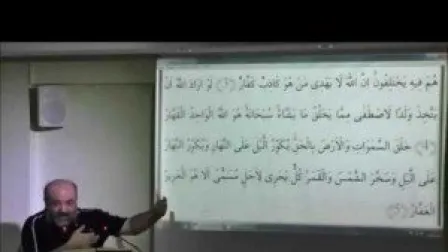 هُمْ فِيهِ يَخْتَلِفُونَ اِنَّ اللّٰهَ لَا يَهْدِى مَنْ هُوَ كَاذِبٌ كَفَّارٌ ﴿٣﴾ لَوْ اَرَادَ اللّٰهُ اَنْ
يَتَّخِذَ وَلَدًا لَاصْطَفٰى مِمَّا يَخْلُقُ مَا يَشَٓاءُ سُبْحَانَهُ هُوَ اللّٰهُ الْوَاحِدُ الْقَهَّارُ
﴿٤﴾ خَلَقَ السَّمٰوَاتِ وَالْاَرْضَ بِالْحَقِّ يُكَوِّرُ الَّيْلَ عَلَى النَّهَارِ وَيُكَوِّرُ النَّهَارَ
عَلَى الَّيْلِ وَسَخَّرَ الشَّمْسَ وَالْقَمَرَ كُلٌّ يَجْرِى لِاَجَلٍ مُسَمًّى اَلَا هُوَ الْعَزِيزُ
الْغَفَّارُ ﴿٥﴾